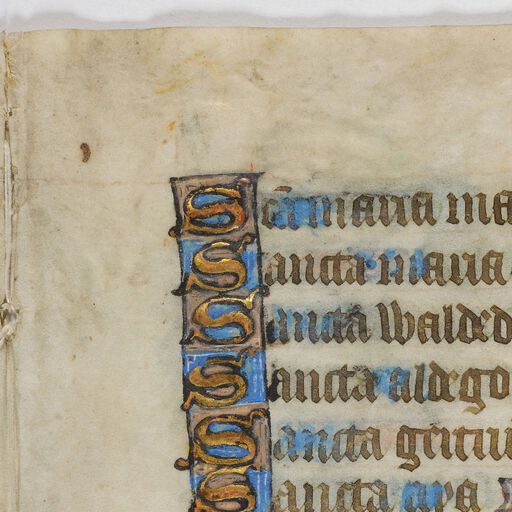 Scā maria ma
Sancta maria
Sancta walded
Sancta aldego
Sancta gertru
Sancta aya